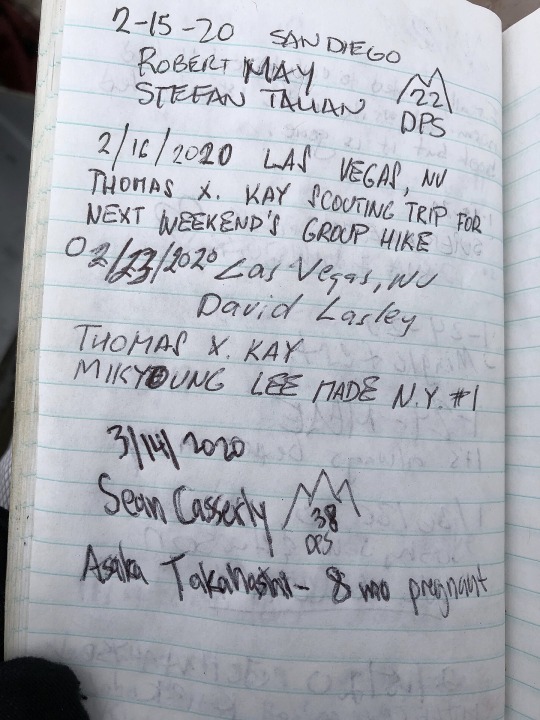 2-15-20 SAN DIEGO
ROBERT MAY
STEFAN
22
DPS
2/16/2020 LAS VEGAS, NV
THOMAS X. KAY SCOUTING TRIP FOR
NEXT WEEKEND'S GROUP HIKE
02/23/2020 Las Vegas, NV
David Lasley
THOMAS X. KAY
MIKYOUNG LEE MADE N.Y. #1
3/14/2020
Sean Casserly
38
DPS
Asaka Takahashi - 8 mo pregnant